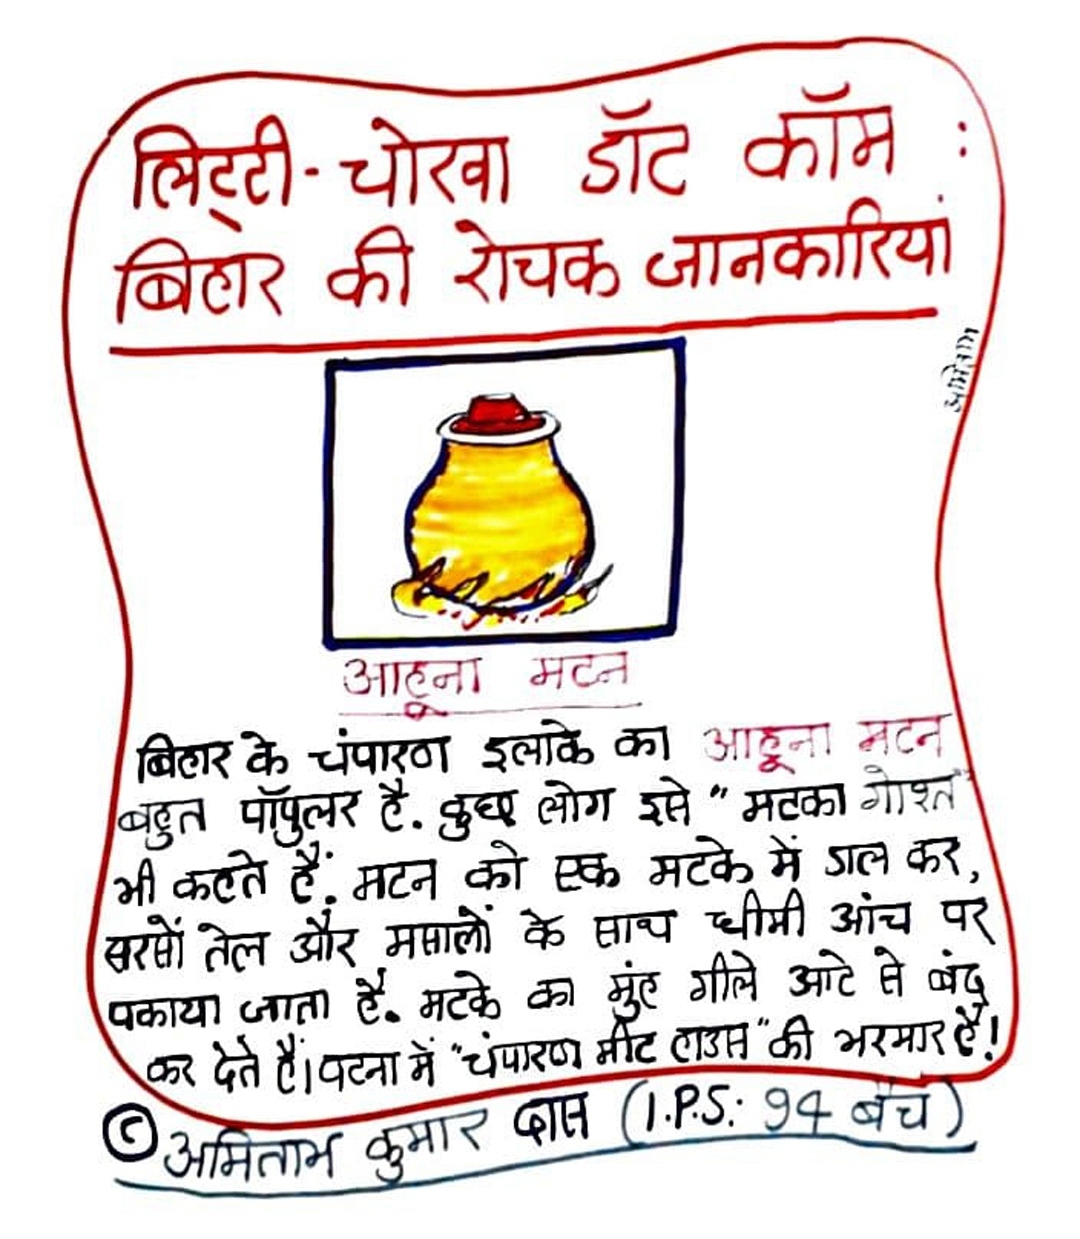 लिट्टी-चोखा डॉट कॉम :
बिहार की रोचक जानकारियां
अमिताभ
आहूना मटन
बिहार के चंपारण इलाके का आहूना मटन
बहुत पॉपुलर है. कुछ लोग इसे "मटका गोश्त"
भी कहते हैं. मटन को एक मटके में डाल कर,
सरसों तेल और मसालों के साथ धीमी आंच पर
पकाया जाता है. मटके का मुंह गीले आटे से बंद
कर देते हैं। पटना में "चंपारण मीट हाउस" की भरमार है!
© अमिताभ कुमार दास (I.P.S.: 94 बैच)